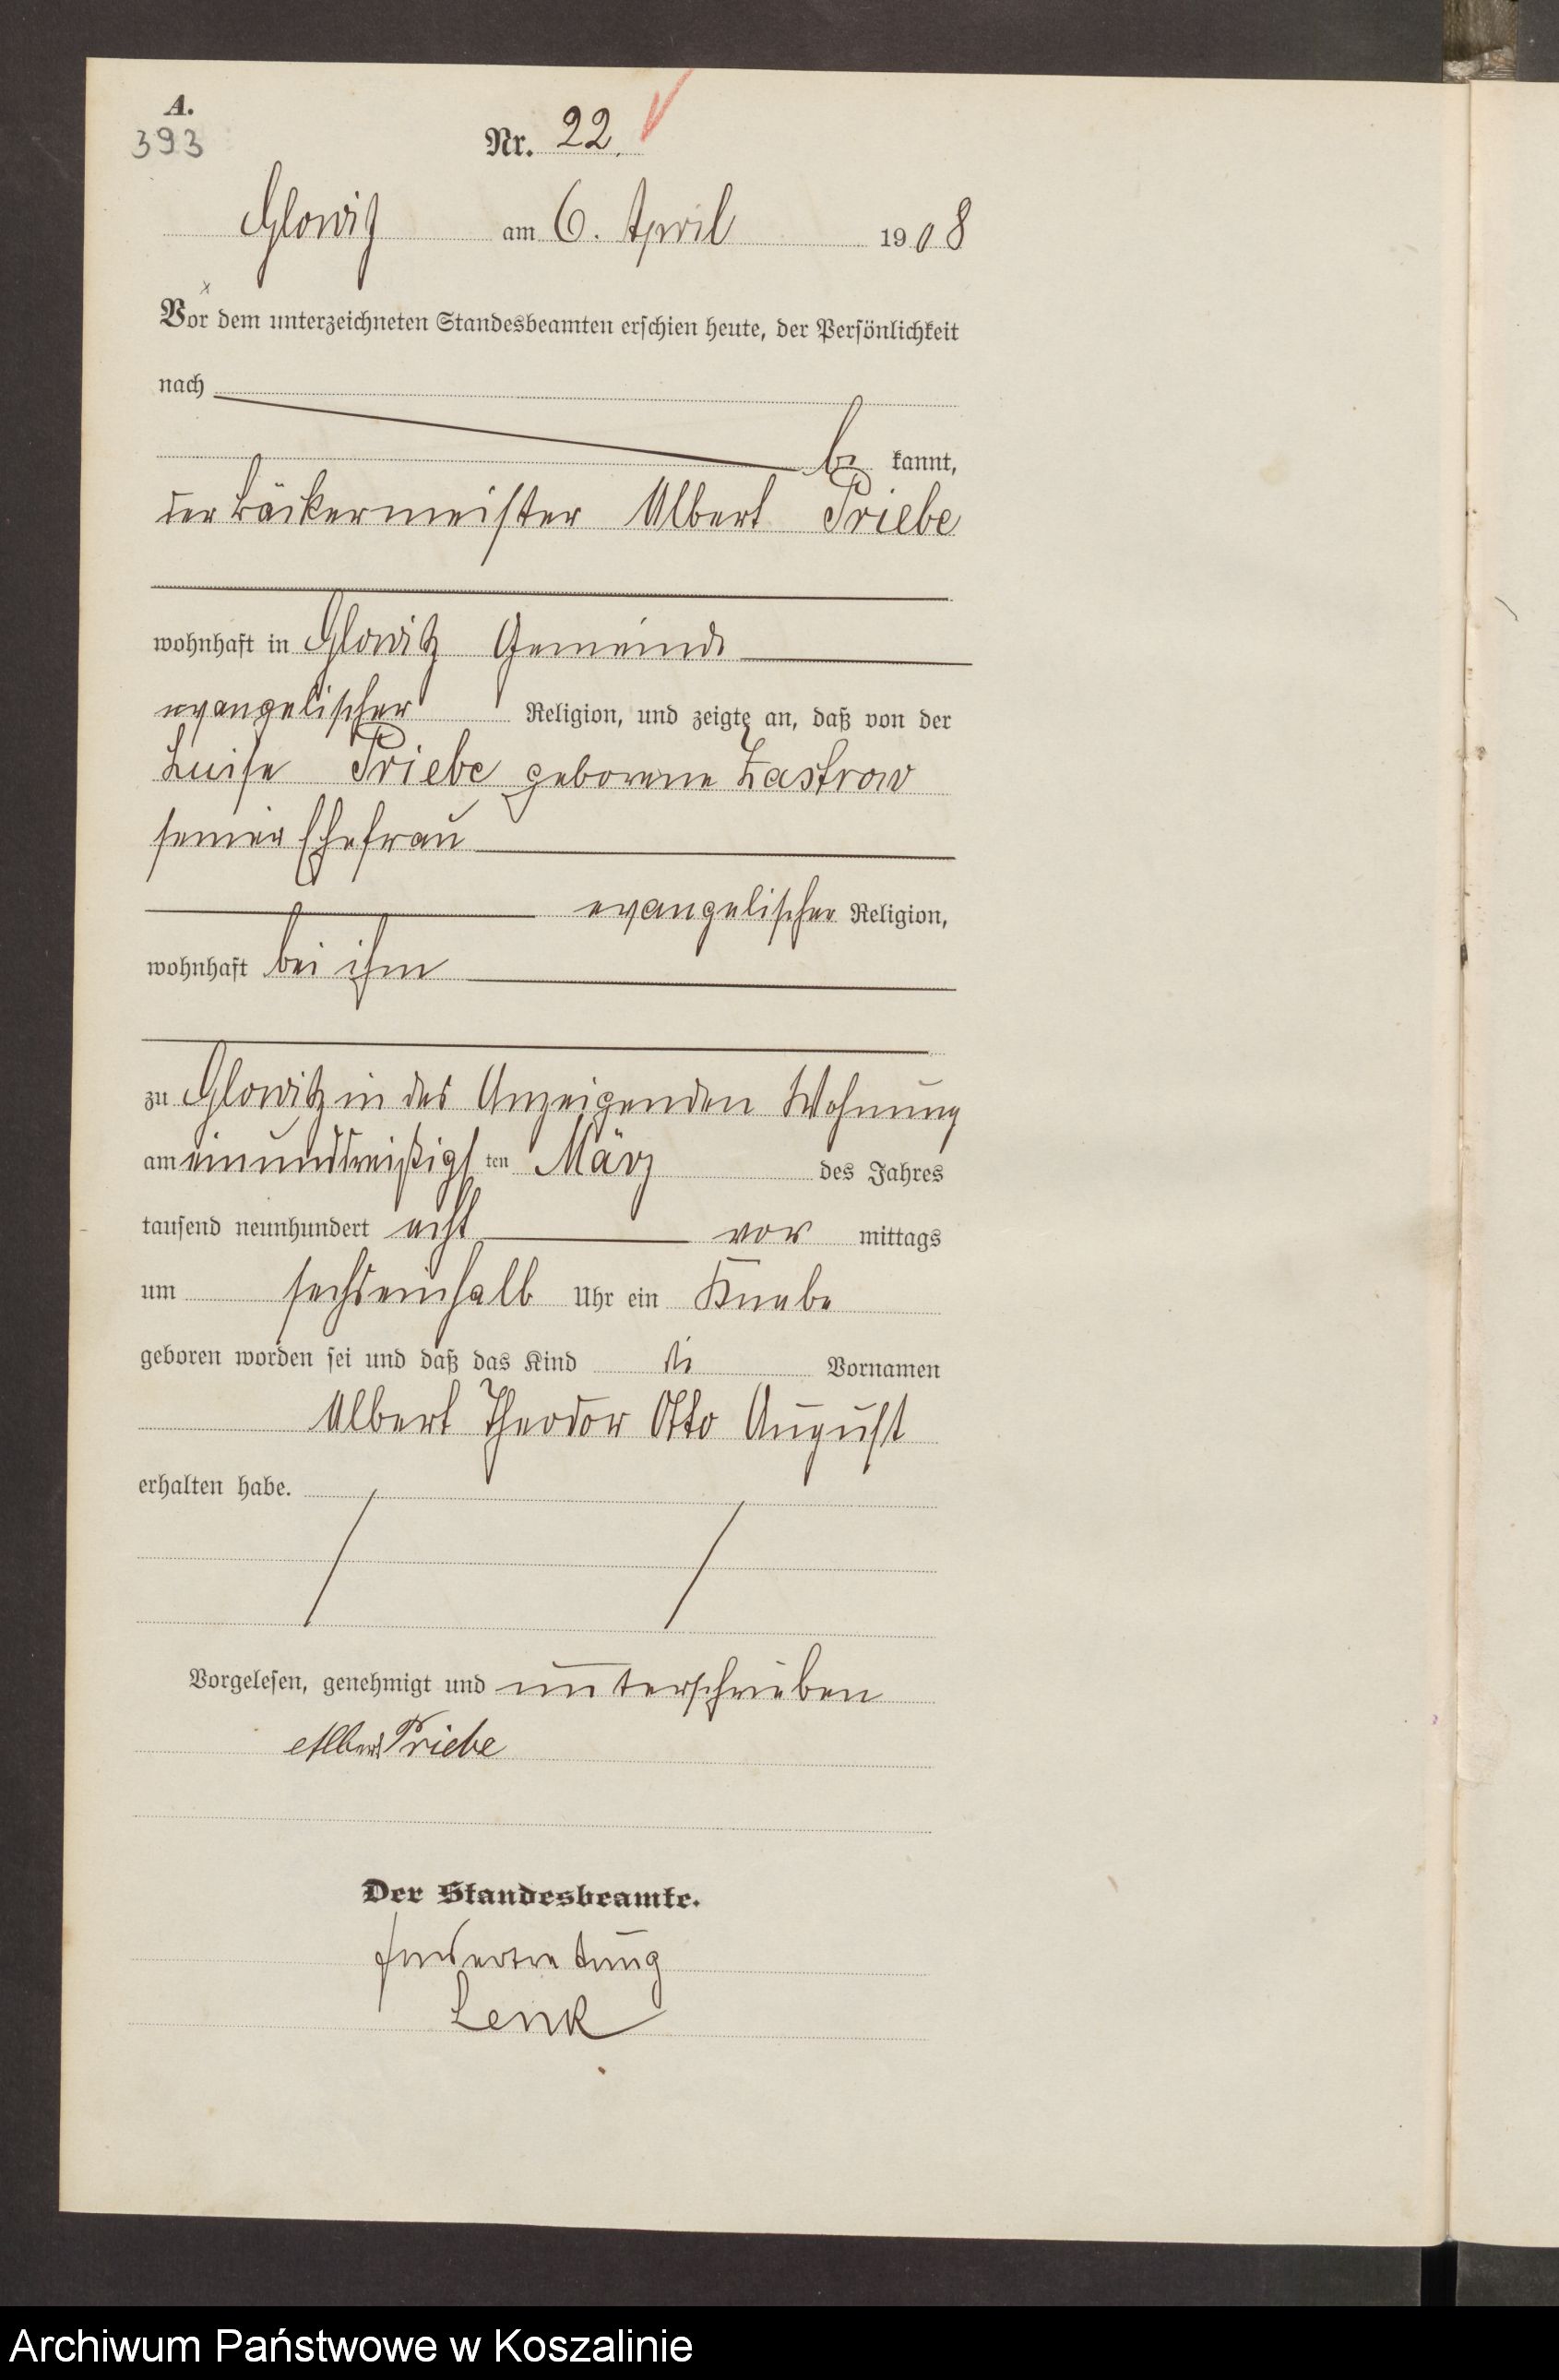 A.
393
Nr. 22.
Glowitz am 6. April 1908
Vor dem unterzeichneten Standesbeamten erschien heute, der Persönlichkeit
nach
be kannt,
der Bäckermeister Albert Priebe
wohnhaft in Glowitz Gemeinde
evangelischer Religion, und zeigte an, daß von der
Luise Priebe geborene Zastrow
seiner Ehefrau
evangelischer Religion,
wohnhaft bei ihm
zu Glowitz in des Anzeigenden Wohnung
am einunddreißigsten März des Jahres
tausend neunhundert acht vor mittags
um sechseinhalb Uhr ein Knabe
geboren worden sei und daß das Kind die Vornamen
Albert Theodor Otto August
erhalten habe.
Vorgelesen, genehmigt und unterschrieben
Albert Priebe
Der Standesbeamte.
In Vertretung
Lenk
Archiwum Państwowe w Koszalinie